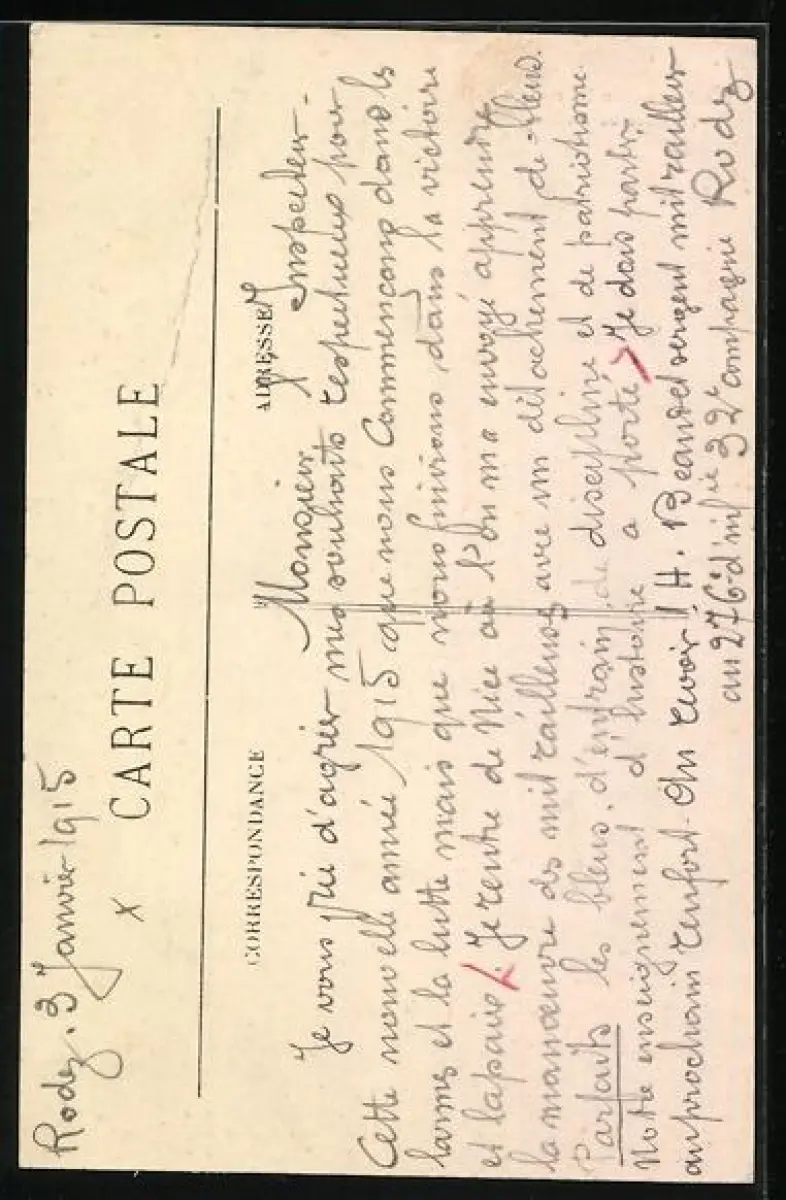 Rodez. 3 Janvier 1915
x
CARTE POSTALE
CORRESPONDANCE
ADRESSE
Monsieur Inspecteur.
Je vous prie d'agréer mes souhaits respectueux pour
Cette nouvelle année 1915 que nous Commençons dans les
larmes et la lutte mais que nous finirons dans la victoire
et la paix. Je rentre de Nice où l'on m'a envoyé apprendre
la manœuvre des mitrailleuses avec un détachement de bleus.
Parfaits les bleus, d'entrain, de discipline et de patriotisme.
Notre enseignement d'histoire a porté. Je dois partir
au prochain renfort. Au revoir! H. sergent mitrailleur
au 276e d'inf ie 32e compagnie Rodez